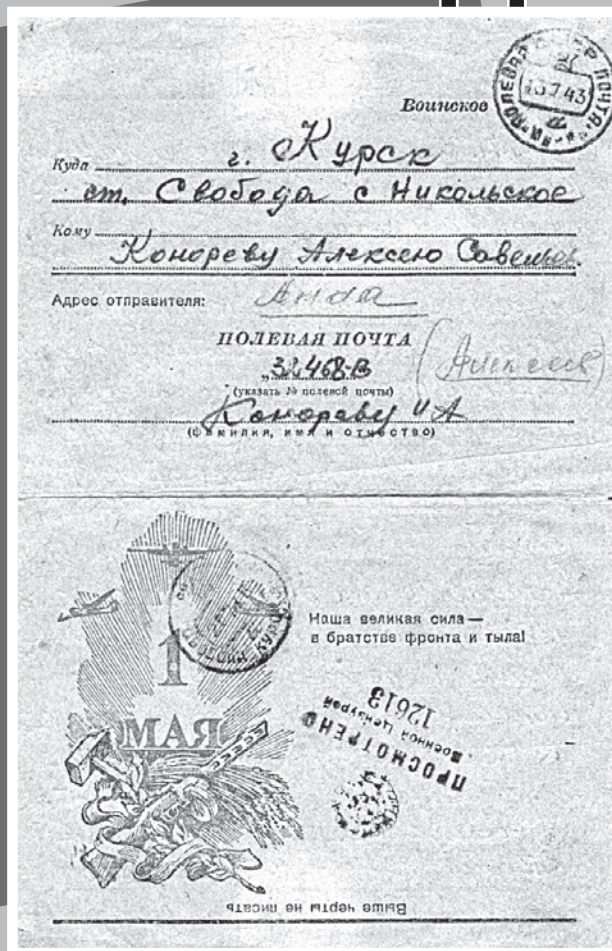 Воинское
ПОЛЕВАЯ ПОЧТА
13.7.43
Куда г. Курск
ст. Свобода с Никольское
Кому
Конореву Алексею Савельев.
Адрес отправителя:
ПОЛЕВАЯ ПОЧТА
32468-В
(Алексеев)
(указать № полевой почты)
Конореву И А
(фамилия, имя и отчество)
1
МАЯ
Наша великая сила —
в братстве фронта и тыла!
ПРОСМОТРЕНО
Военной Цензурой
12613
Выше черты не писать